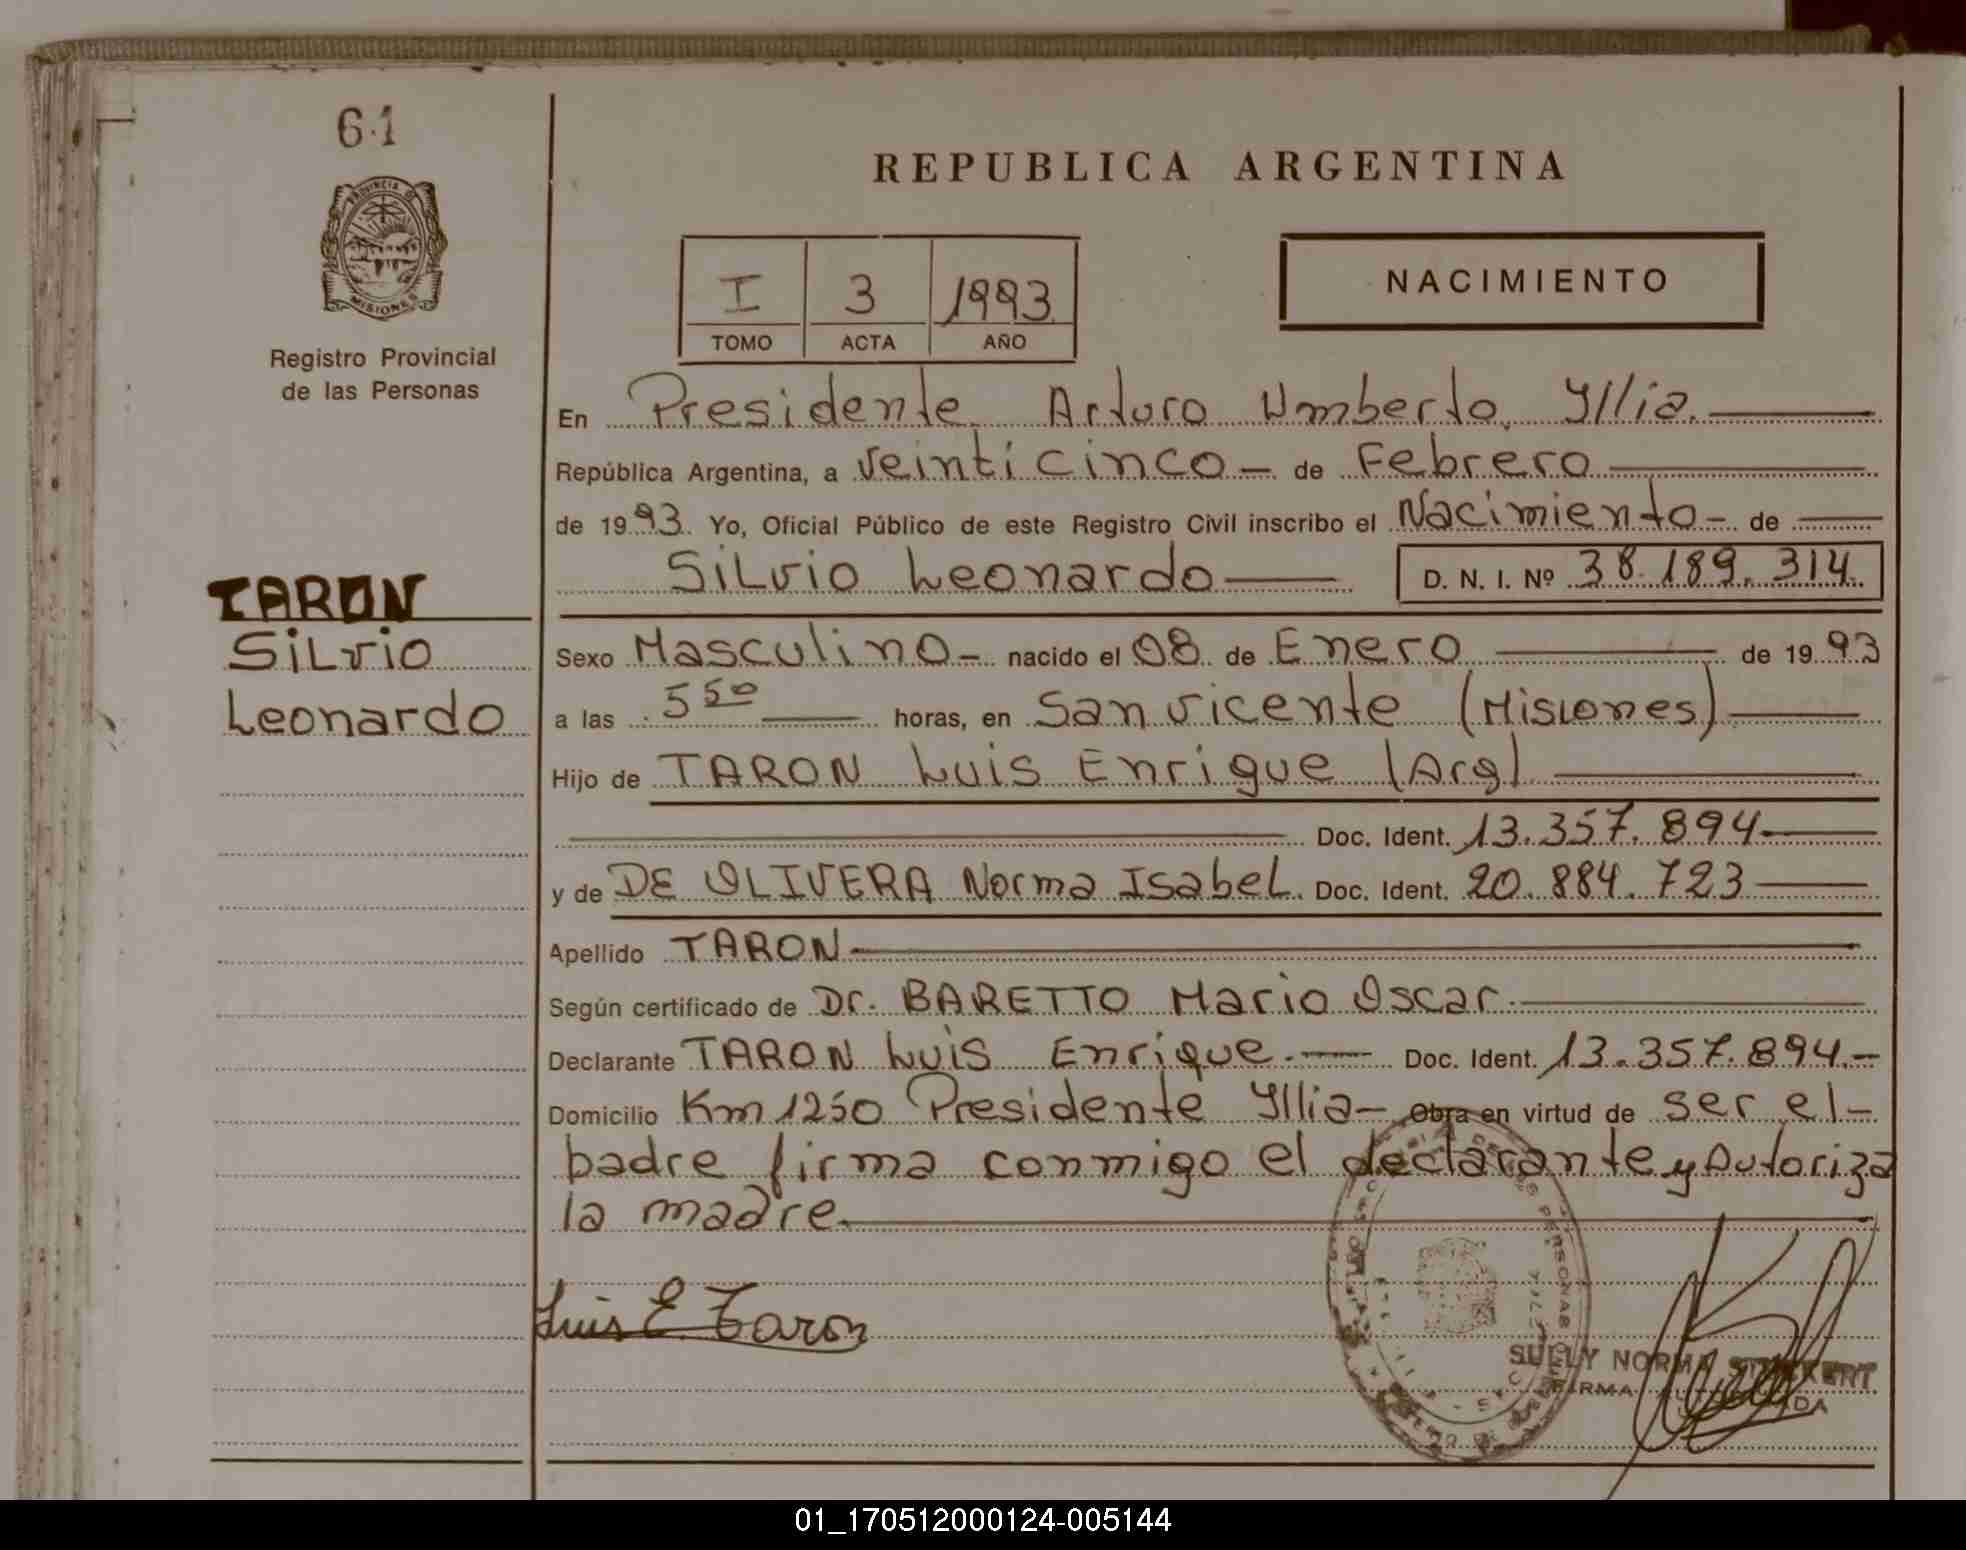 61
PROVINCIA D
MISIONES
Registro Provincial
de las Personas
REPUBLICA ARGENTINA
I 3 1993
TOMO ACTA AÑO
NACIMIENTO
En Presidente Arturo Umberto Yllia.
República Argentina, a veinti cinco - de Febrero
de 1993. Yo, Oficial Público de este Registro Civil inscribo el Nacimiento - de
Silvio Leonardo D. N. I. Nº 38.189.314.
TARON
Silvio
Leonardo
Sexo Masculino - nacido el 08 de Enero de 1993
a las 5 50 horas, en San vicente (Misiones)
Hijo de TARON Luis Enrique (Arg)
Doc. Ident. 13.357.894
y de DE OLIVERA Norma Isabel. Doc. Ident. 20.884.723
Apellido TARON
Según certificado de Dr. BARETTO Mario Oscar.
Declarante TARON Luis Enrique. Doc. Ident. 13.357.894.-
Domicilio Km 1250 Presidente Yllia - Obra en virtud de ser el -
padre firma conmigo el declarante y Autoriza
la madre.
Luis E. Taron
SULLY NORMA
FIRMA
01_170512000124-005144